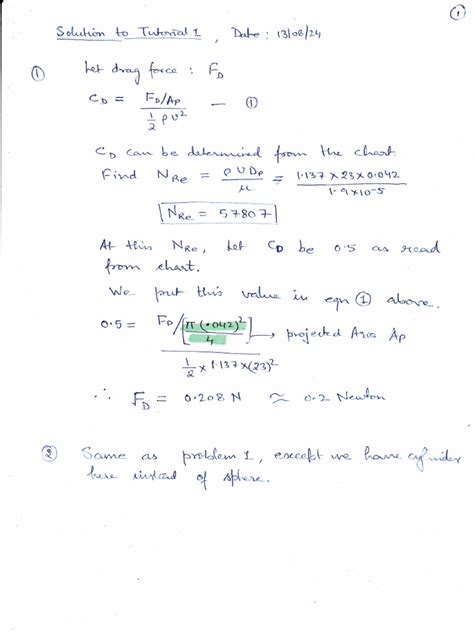 ①
Solution to Tutorial 1, Date: 13/08/24
① Let drag force : F_D
C_D = (F_D/A_P) / (1/2 ρ υ²) — ①
C_D can be determined from the chart.
Find N_Re = ρ υ D_P / μ = 1.137 × 23 × 0.042 / 1.9 × 10⁻⁵
N_Re = 57807
At this N_Re, let C_D be 0.5 as read
from chart.
We put this value in eqn ① above.
0.5 = F_D / [π (.042)² / 4] → projected Area A_P
1/2 × 1.137 × (23)²
∴ F_D = 0.208 N ≈ 0.2 Newton
② Same as problem 1, except we have cylinder
here instead of sphere.